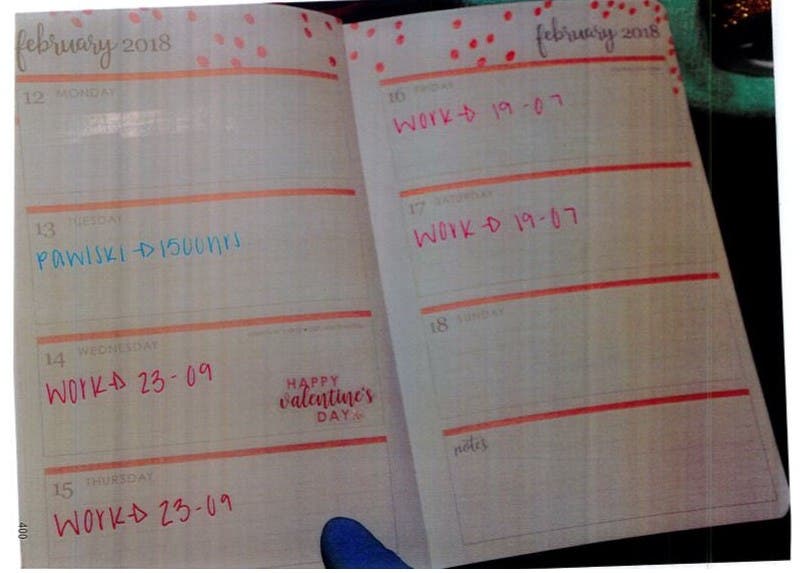 february 2018
12 MONDAY
13 TUESDAY
PAWLSKI → 1500hrs
14 WEDNESDAY
WORK → 23-09
HAPPY
valentine's
DAY
15 THURSDAY
WORK → 23-09
400
february 2018
16 FRIDAY
WORK → 19-07
17 SATURDAY
WORK → 19-07
18 SUNDAY
notes